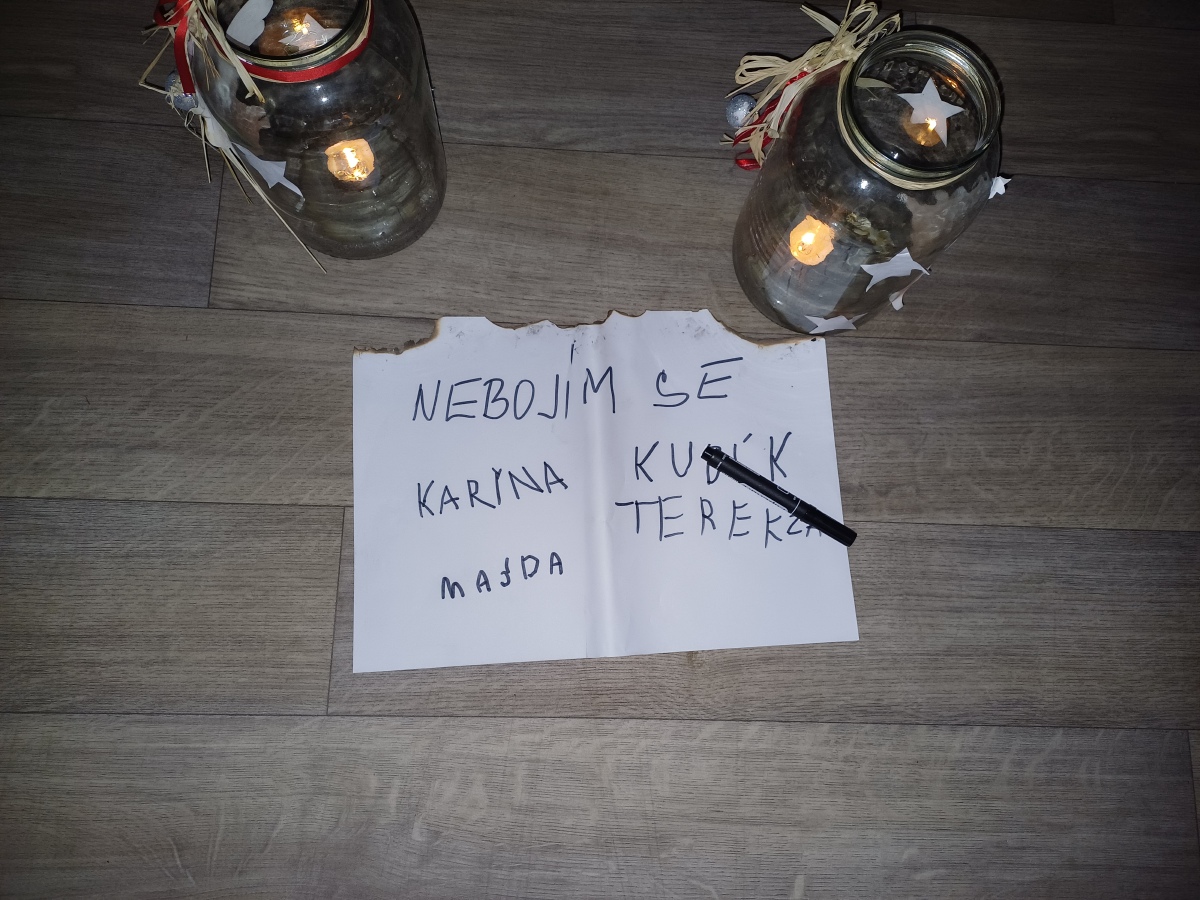 NEBOJÍM SE
KARINA
MAJDA
KUBÍK
TEREKZA